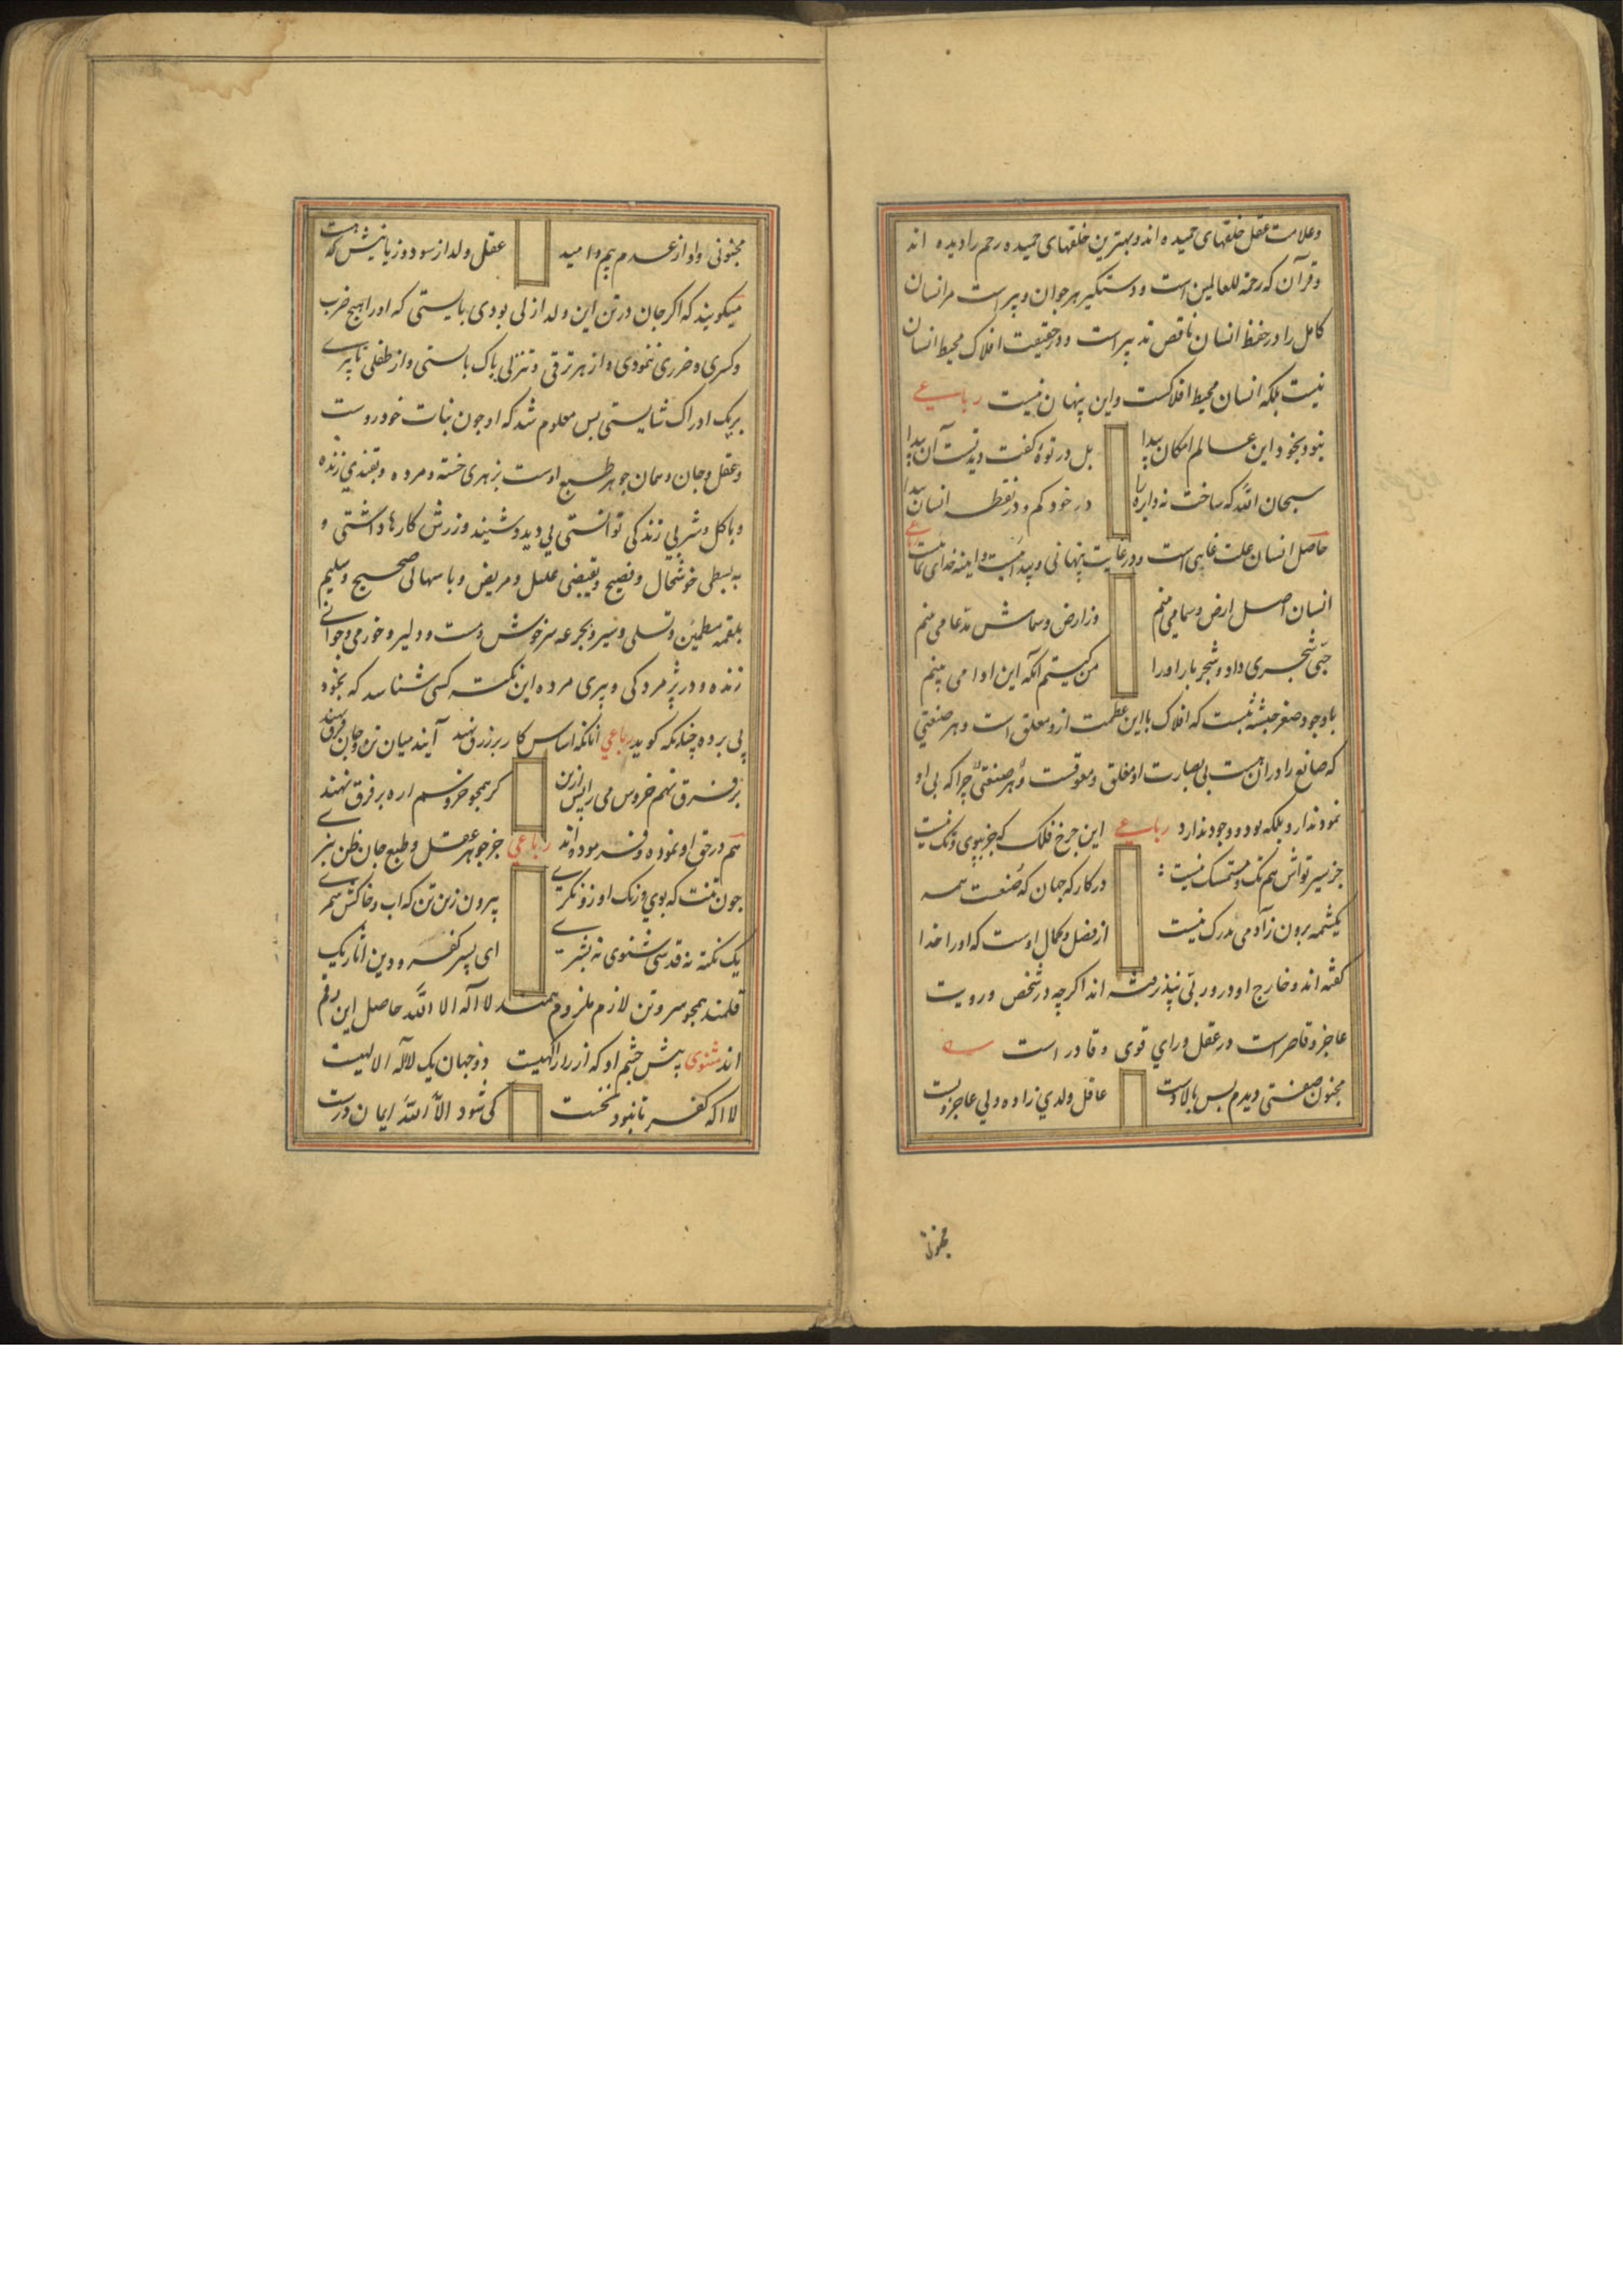 وعلامت عقل خلقهای حمیده اند وبهترین خلقهای حمیده رحم را دیده اند
وقرآن که رحمة للعالمین است ودستکیر هر جوان وپیر است مر انسان
کامل را در حفظ انسان ناقص تدبیر است ودر حقیقت افلاک محیط انسان
نیست بلکه انسان محیط افلاکست واین پنهان نیست رباعی
نبود بخود این عالم امکان پیدا بل در تو کفت دیدنست آن پیدا
سبحان الله که ساخت نه دایره را در خود کم ودر نقطه انسان پیدا
حاصل انسان علت غایی است ودر غایت پنهانی وپیداست وآینه خدای نماست رباعی
انسان اصل ارض وسما می بینم وز ارض وسماش مدعا می بینم
حبی شجری داد وشجر بار او را من کیستم آنکه این ادا می بینم
با وجود صغر جثه که افلاک با این عظمت ازو معلق است وهر صنعتی
که صانع را در آن هست بی بصارت او مغلق ومعوقست وهر صنعتی چرا که بی او
نمود ندارد بلکه بود ووجود ندارد رباعی این چرخ فلک که جز بپوی وتک نیست
جز سیر تواش هم تک ومتمسک نیست
در کارکه جهان که صنعت همه
یکشمه برون ز آدمی مدرک نیست از فضل وکمال اوست که او را خدا
کفته اند وخارج او در ور بی نپذیرفته اند اکرچه در شخص ورویت
عاجز وقاصر است در عقل ورای قوی وقادر است
مجنون صفتی دیدم بس بالادست عاقل ولدی زاده ولی عاجز وپست
مجنونی
مجنونی او از عدم بیم وامید عقل ولد از سود وزیانیش که هست
میکویند که اکر جان در تن این ولد ازلی بودی بایستی که او را هیچ ضرب
وکسری وضرری ننمودی واز هر ترقی وتنزلی پاک بایستی واز طفلی تا پیری
بریک ادراک شایستی پس معلوم شد که او چون نبات خودروست
وعقل وجان وسمان جوهر طبع اوست بزهری خسته ومرده وبقندی زنده
وباکل وشربی زندکی توانستی بی دید وشنید ورزش کارها داشتی و
به بسطی خوشحال وفصیح وبقبضی علیل ومریض وباسهالی صحیح وسلیم
بلقمه مطمئن وتسلی وسیر وبجرعه سرخوش ومست ودلیر وخورمی وجوانی
زنده ودر پژمردکی وپیری مرده این نکته کسی شناسد که بخود
پی برده چنانکه کوید رباعی آنانکه اساس کار بر زرق نهند آیند میان تن وجان فرق نهند
بر فرق نهم خروس می را پس ازین کر همچو خروسم اره بر فرق نهند
هم در حق او نموده وفرموده اند رباعی جز جوهر عقل وطبع جان ظن نبری
چون تنت که بوی ورنک او زو نکری بیرون ز تن تن که آب وخاکش شمری
یک نکته نه قدسی شنوی نه بشری ای پسر کفر ودین انار یک
قلمند همچو سر وتن لازم ملزوم همند لا اله الا الله حاصل این رقم
اند مثنوی پیش چشم او که از راز آکهیست دو جهان یک لا اله الا لهیست
لا اکه کفر تا نبود نخست کی شود الا الله ایمان درست